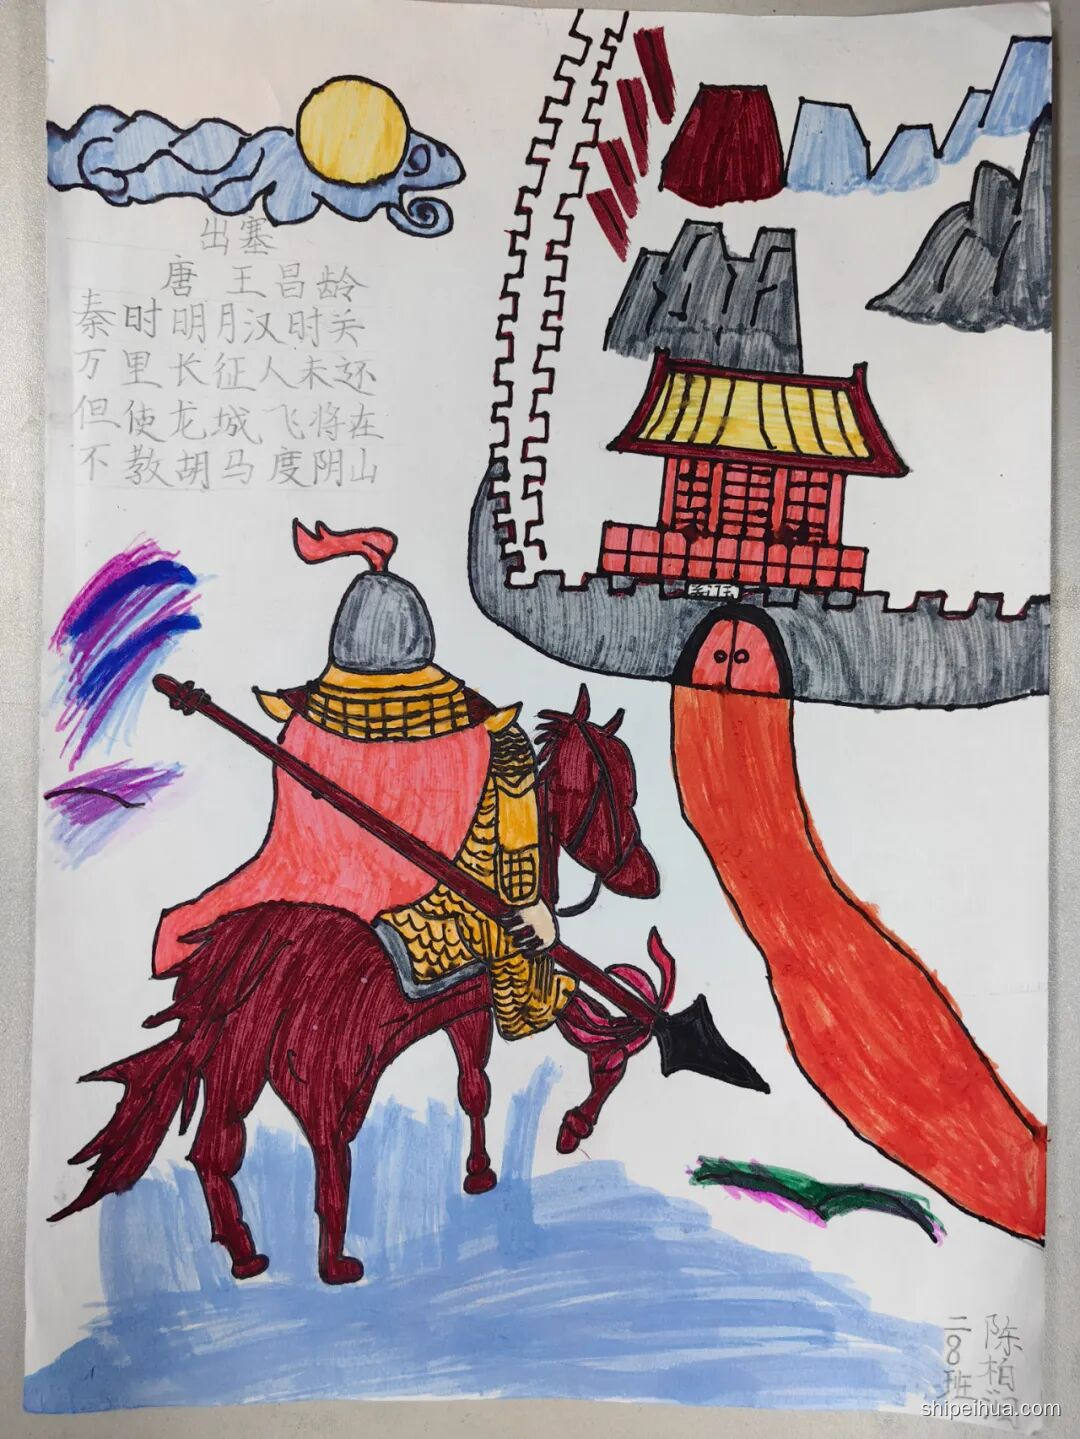 出塞
唐 王昌龄
秦时明月汉时关
万里长征人未还
但使龙城飞将在
不教胡马度阴山
二8班
陈柏
shipeihua.com